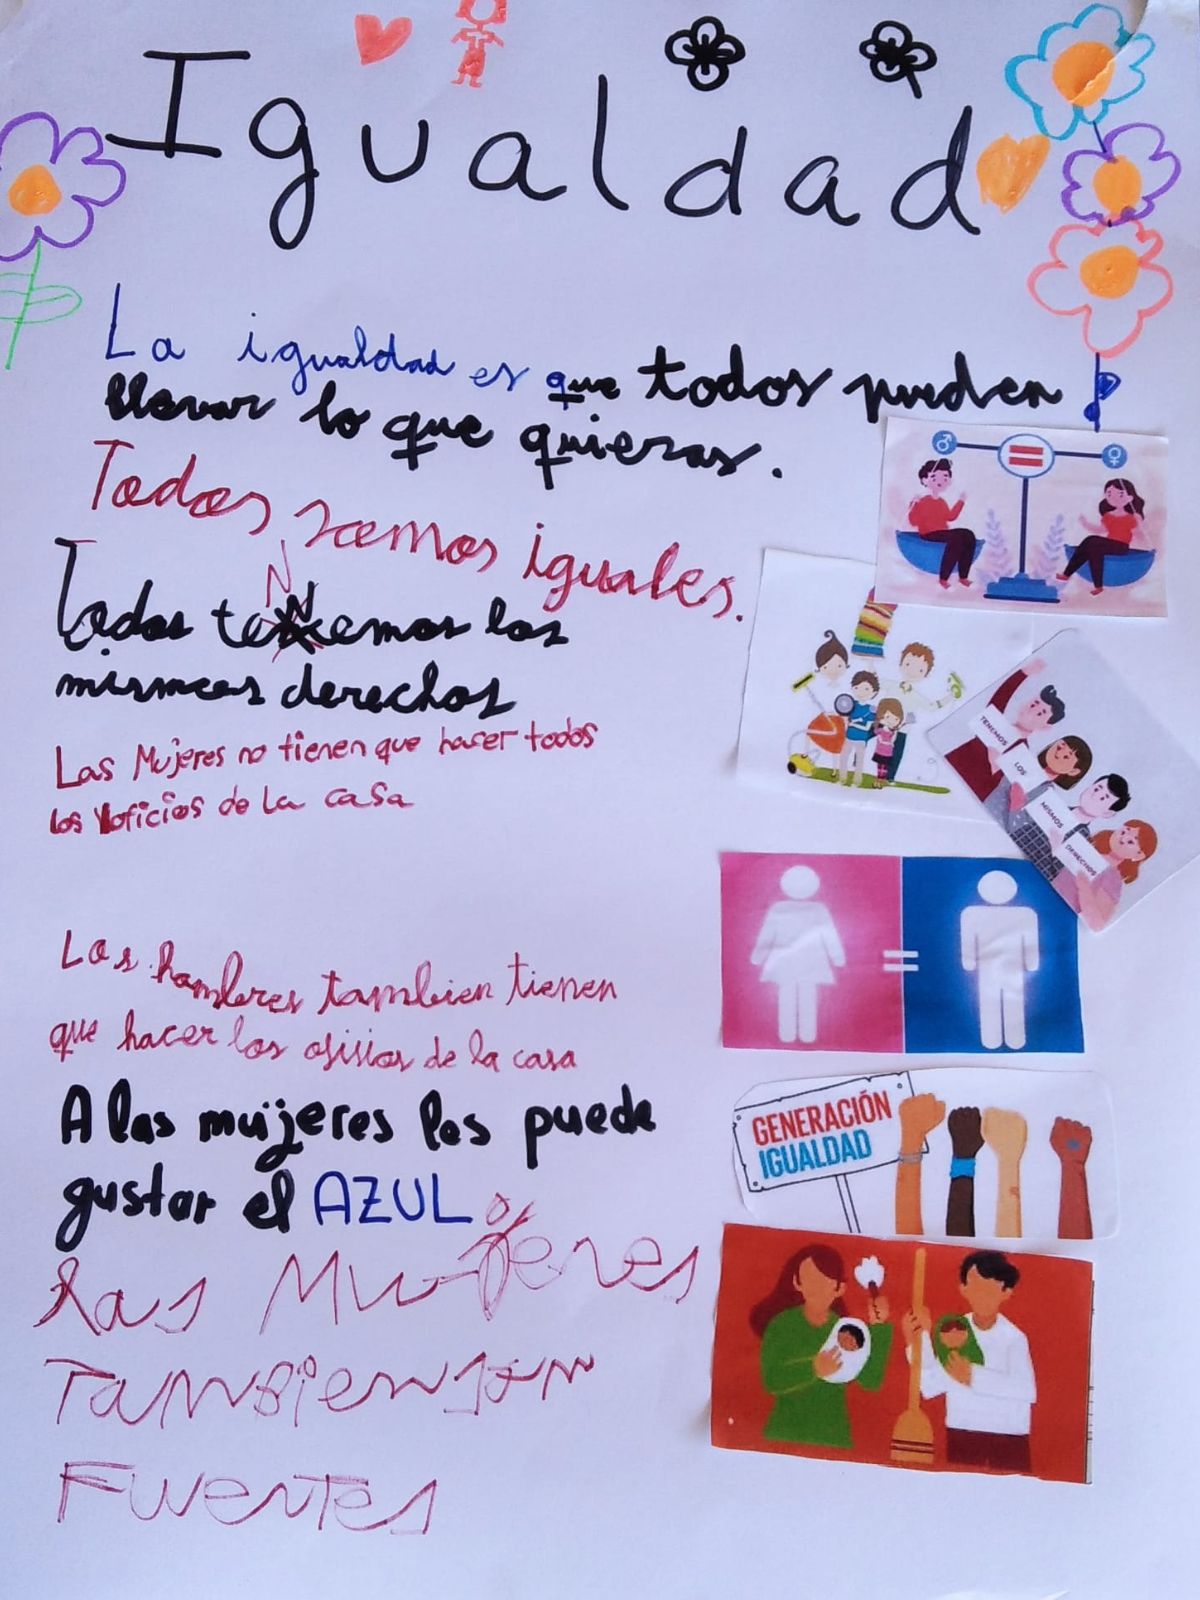 Igualdad
La igualdad es que todos pueden
llevar lo que quieras.
Todos somos iguales.
Todos tenemos los
mismos derechos
Las Mujeres no tienen que haser todos
los oficios de la casa
Los hombres tambien tienen
que hacer los ofisios de la casa
A las mujeres les puede
gustar el AZUL
Las Mujeres
Tambien son
Fuertes
=
TENEMOS
LOS
MISMOS
DERECHOS
=
GENERACIÓN
IGUALDAD